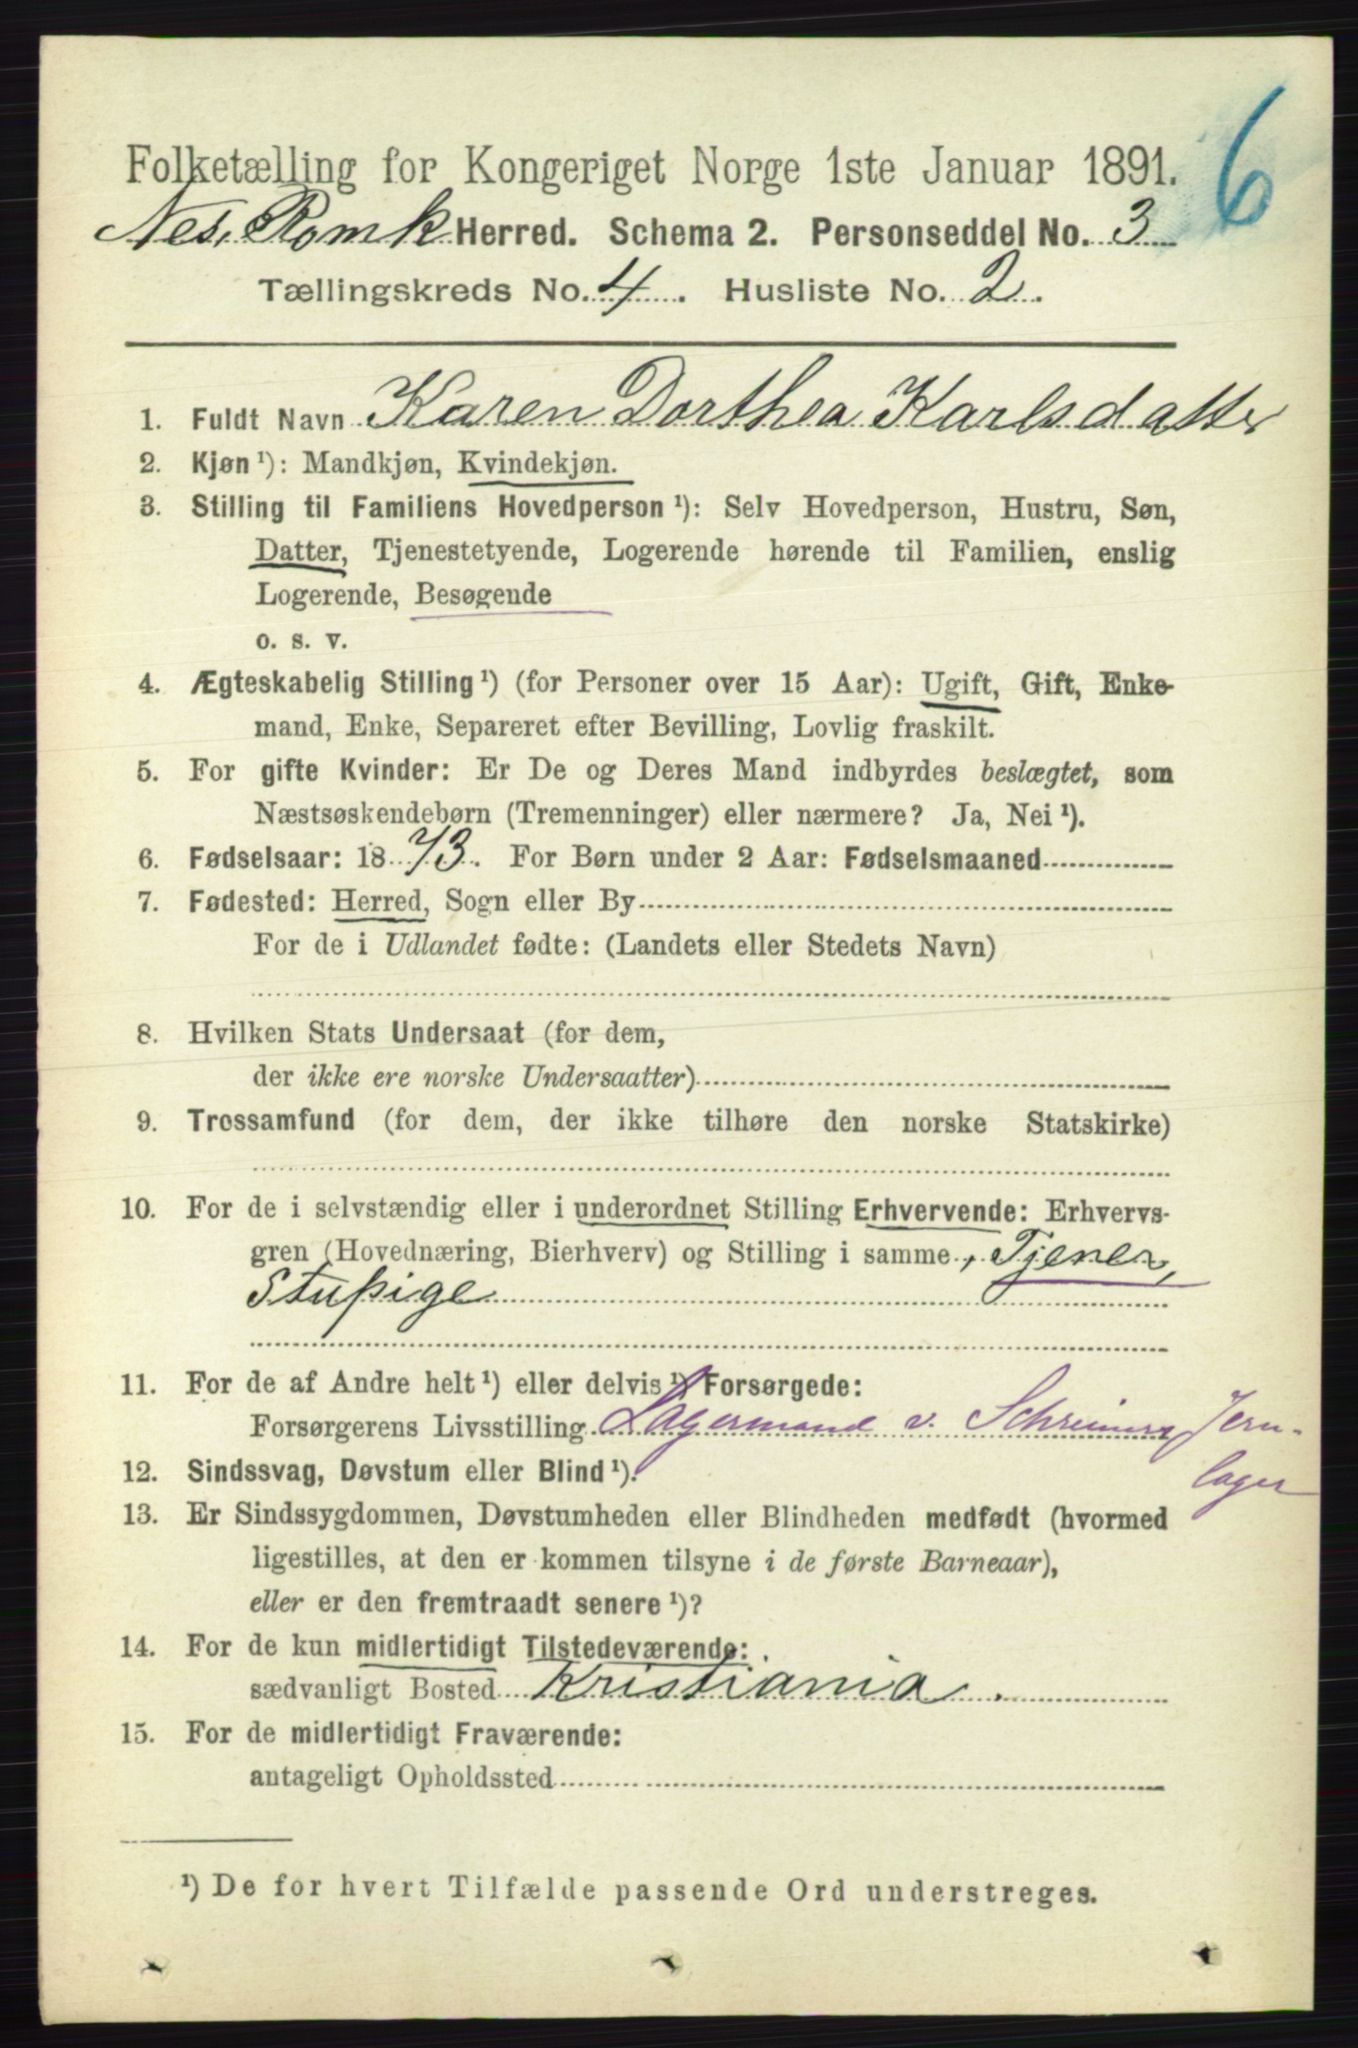 6
Folketælling for Kongeriget Norge 1ste Januar 1891.
Nes, Romk Herred. Schema 2. Personseddel No. 3
Tællingskreds No. 4. Husliste No. 2.
1. Fuldt Navn Karen Dorthea Karlsdatter
2. Kjøn ¹): Mandkjøn, Kvindekjøn.
3. Stilling til Familiens Hovedperson ¹): Selv Hovedperson, Hustru, Søn,
Datter, Tjenestetyende, Logerende hørende til Familien, enslig
Logerende, Besøgende
o. s. v.
4. Ægteskabelig Stilling ¹) (for Personer over 15 Aar): Ugift, Gift, Enke-
mand, Enke, Separeret efter Bevilling, Lovlig fraskilt.
5. For gifte Kvinder: Er De og Deres Mand indbyrdes beslægtet, som
Næstsøskendebørn (Tremenninger) eller nærmere? Ja, Nei ¹).
6. Fødselsaar: 1873. For Børn under 2 Aar: Fødselsmaaned
7. Fødested: Herred, Sogn eller By
For de i Udlandet fødte: (Landets eller Stedets Navn)
8. Hvilken Stats Undersaat (for dem,
der ikke ere norske Undersaatter)
9. Trossamfund (for dem, der ikke tilhøre den norske Statskirke)
10. For de i selvstændig eller i underordnet Stilling Erhvervende: Erhvervs-
gren (Hovednæring, Bierhverv) og Stilling i samme, Tjener,
Stupige
11. For de af Andre helt ¹) eller delvis ¹) Forsørgede:
Forsørgerens Livsstilling Lagermand v. Schreiners Jern-
lager
12. Sindssvag, Døvstum eller Blind ¹).
13. Er Sindssygdommen, Døvstumheden eller Blindheden medfødt (hvormed
ligestilles, at den er kommen tilsyne i de første Barneaar),
eller er den fremtraadt senere ¹)?
14. For de kun midlertidigt Tilstedeværende:
sædvanligt Bosted Kristiania.
15. For de midlertidigt Fraværende:
antageligt Opholdssted
¹) De for hvert Tilfælde passende Ord understreges.